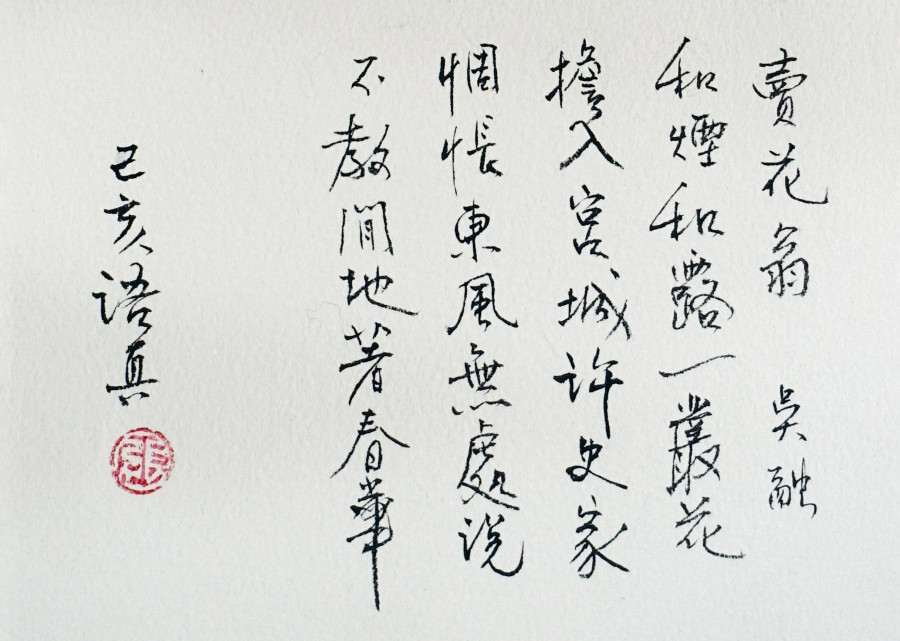 賣花翁 吳融
和煙和露一叢花
擔入宮城許史家
惆悵東風無處说
不教閒地著春華
己亥语真